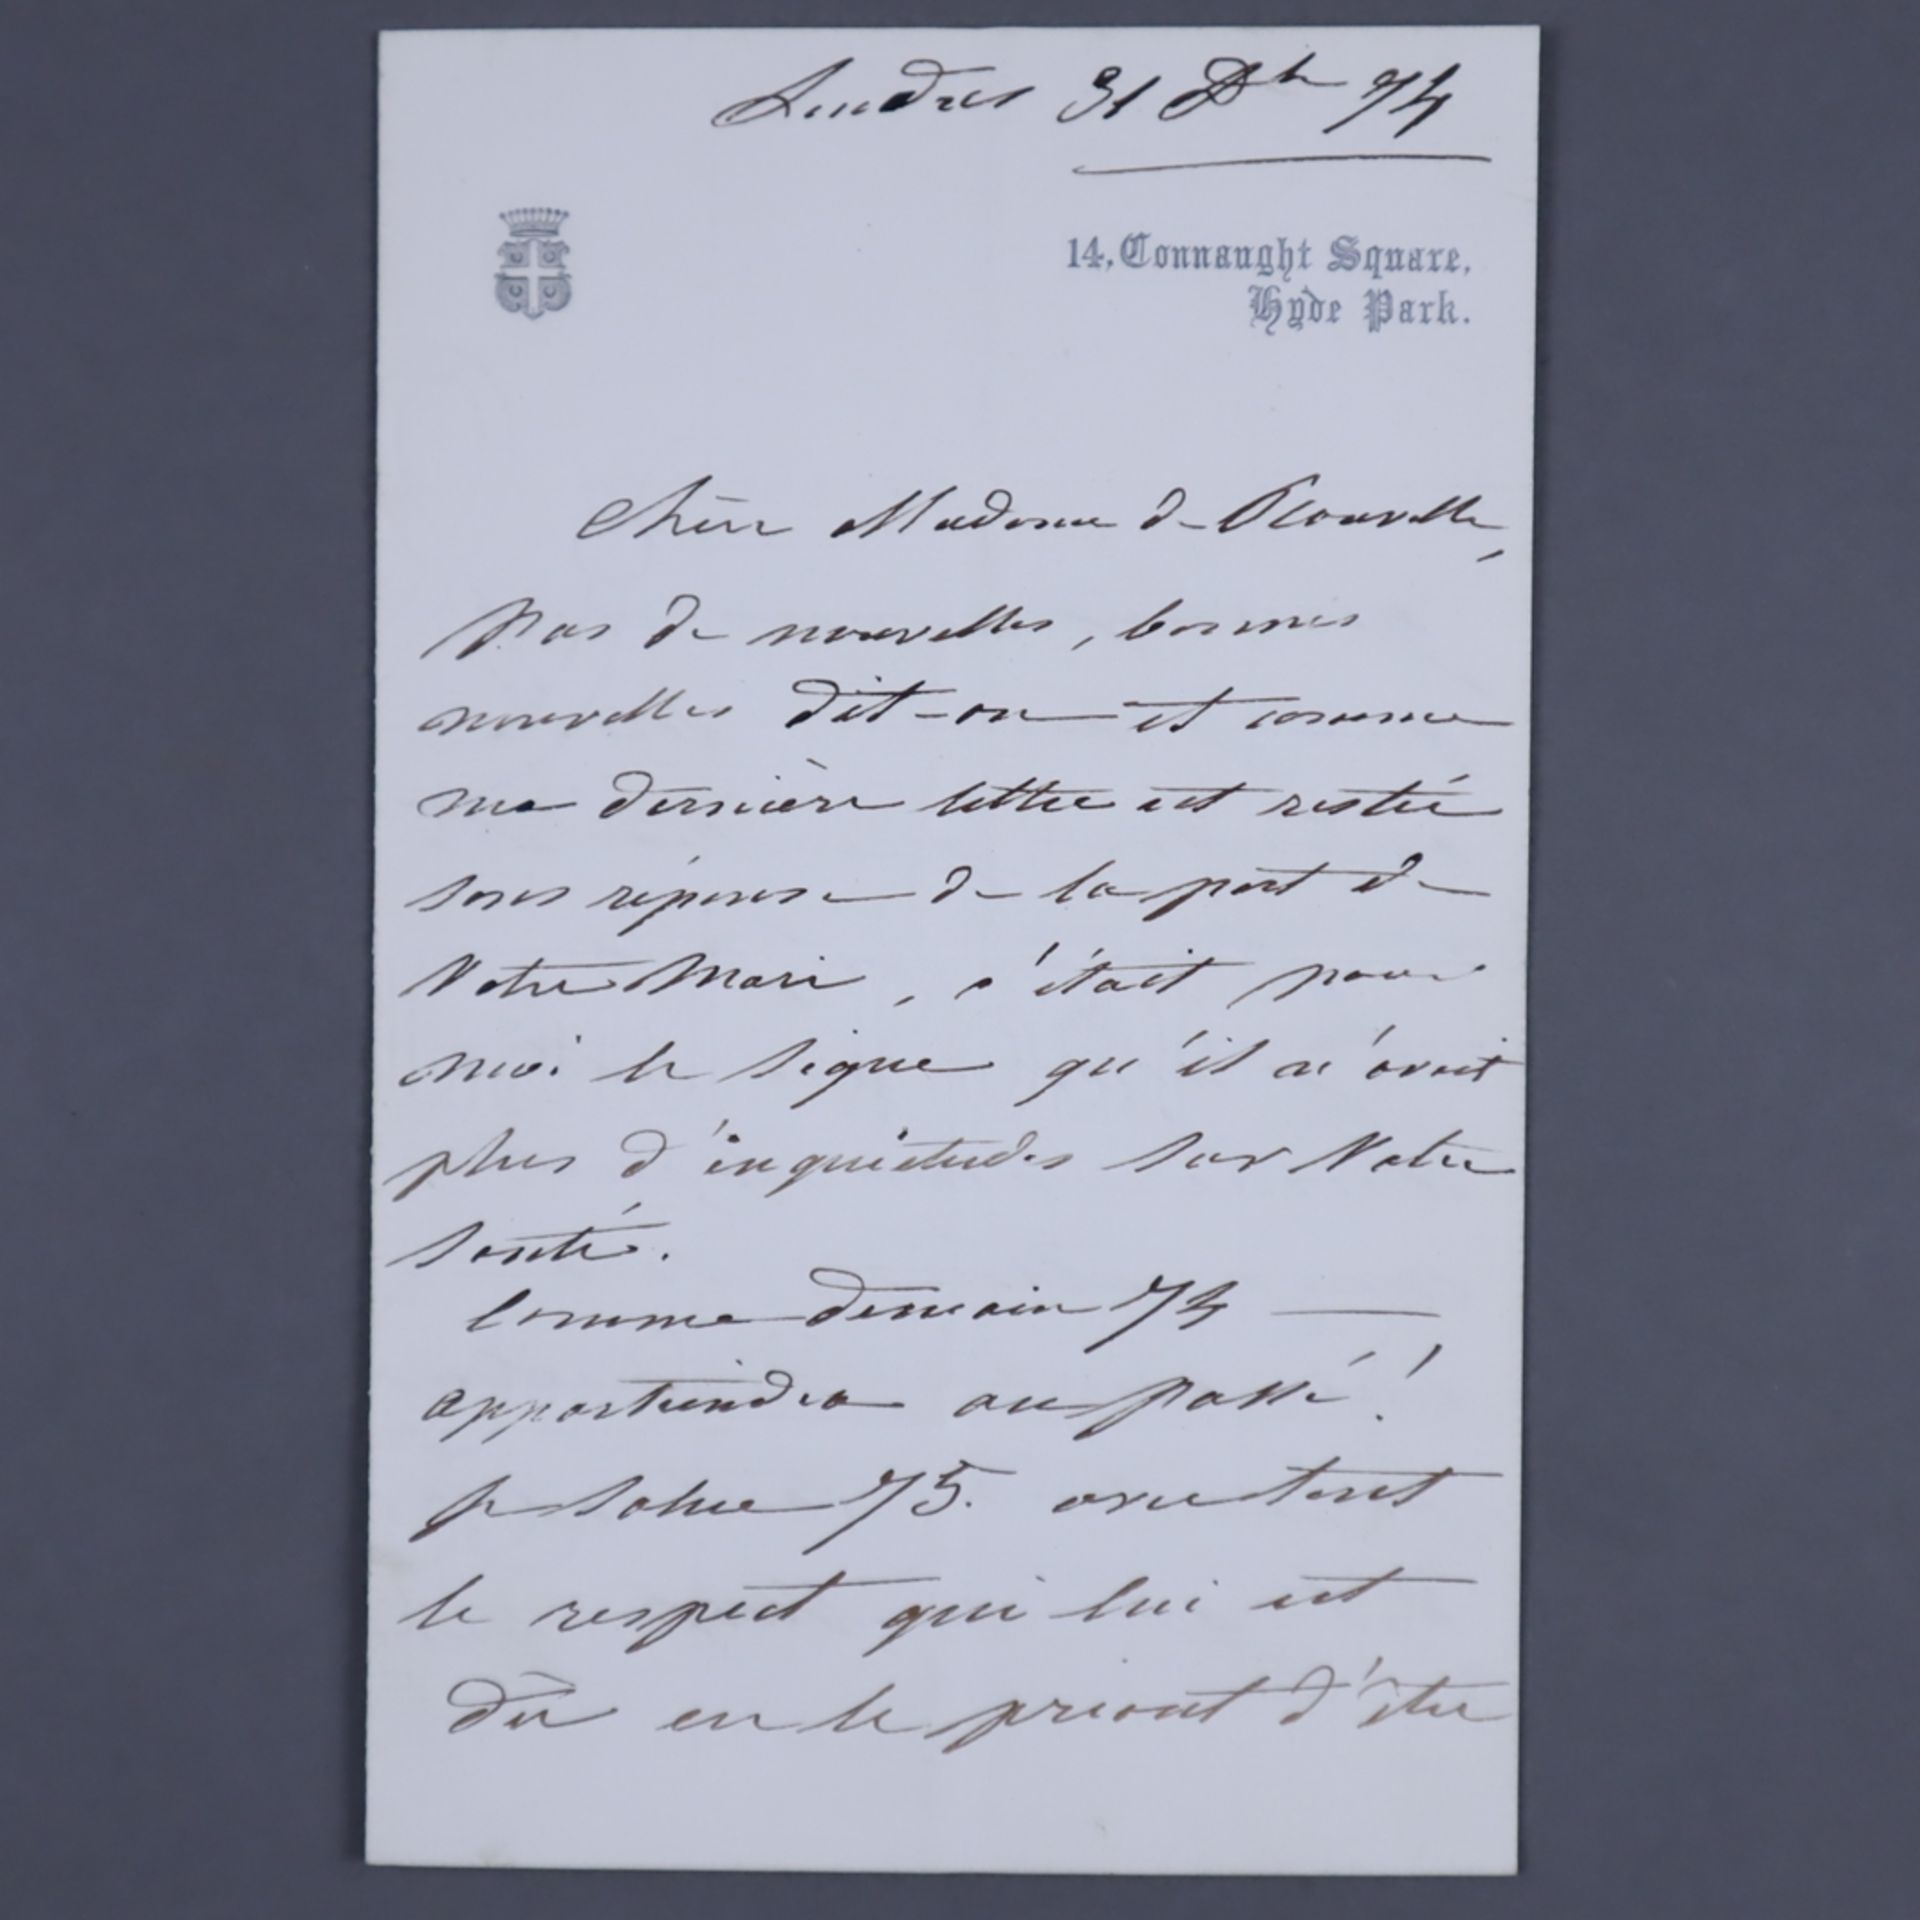 Londres 31 Dbr 74
14, Connaught Square,
Hyde Park.
Chère Madame de
Pas de nouvelles, bonnes
nouvelles dit-on et comme
ma dernière lettre est restée
sans réponse de la part de
Votre Mari, c'était pour
moi le signe qu'il n'avait
plus d'inquiétudes sur Votre
santé.
Comme demain 74 —
appartiendra au passé!
je salue 75. avec tout
le respect qui lui est
dû en le priant d'être